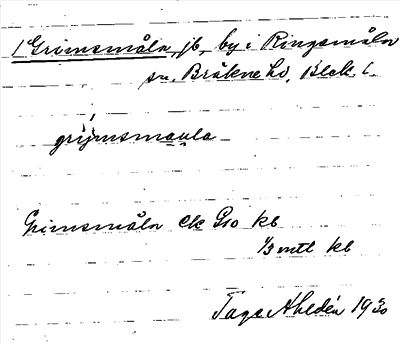 1 Grimsmåla, jb, by i Ringamåla
sn. Bräkne hd, Blek. l.
grijmsmaula
Grimsmåla Ek Gro kb
1/3 mtl kb
Tage Ahldén 1930